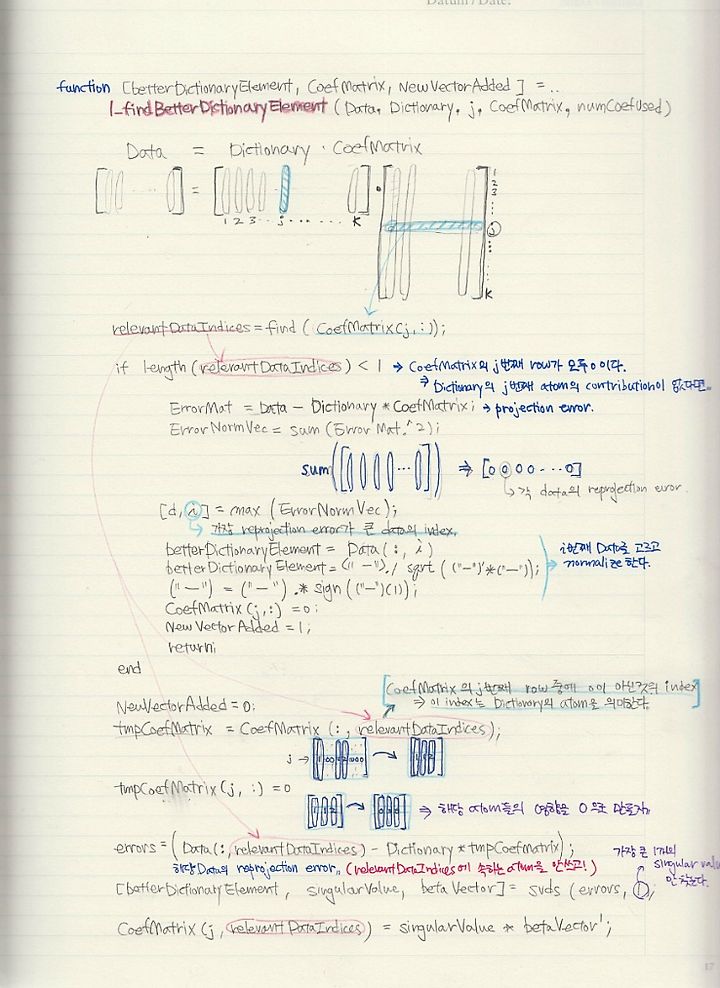 Datum / Date:
function [betterDictionaryElement, CoefMatrix, NewVectorAdded] = ..
I_findBetterDictionaryElement (Data, Dictionary, j, CoefMatrix, numCoefUsed)
Data = Dictionary · CoefMatrix
[ ..... ] = [ ..... ] · [ ]
1 2 3 ·· j ··· ···· K
1
2
3
:
j
:
K
relevantDataIndices = find (CoefMatrix(j,:));
if length(relevantDataIndices) < 1 → CoefMatrix의 j번째 row가 모두 0이다.
⇒ Dictionary의 j번째 atom의 contribution이 없다면..
ErrorMat = Data - Dictionary * CoefMatrix; → projection error.
ErrorNormVec = sum (ErrorMat.^2);
sum([ ··· ]) ⇒ [0 0 0 0 ··· 0]
각 data의 reprojection error.
[d, i] = max (ErrorNormVec);
가장 reprojection error가 큰 data의 index.
betterDictionaryElement = Data(:, i)
betterDictionaryElement = (" — ")./ sqrt ( ("—")'*("—"));
i번째 Data를 고르고
normalize 한다.
("—") = ("—") .* sign (("—")(1));
CoefMatrix (j,:) = 0;
NewVectorAdded = 1;
return;
end
[CoefMatrix의 j번째 row 중에 0이 아닌것의 index]
⇒ 이 index는 Dictionary의 atom을 의미한다.
NewVectorAdded = 0;
tmpCoefMatrix = CoefMatrix (:, relevantDataIndices);
j →
tmpCoefMatrix(j, :) = 0
⇒ 해당 atom들의 영향을 0으로 만들자.
errors = (Data(:, relevantDataIndices) - Dictionary * tmpCoefmatrix);
해당 Data의 reprojection error. (relevantDataIndices에 속하는 atom을 안쓰고!)
가장 큰 1개의
singular value
[betterDictionaryElement, singularValue, betaVector] = svds (errors, 1);
CoefMatrix (j, relevantDataIndices) = singularValue * betaVector';
17